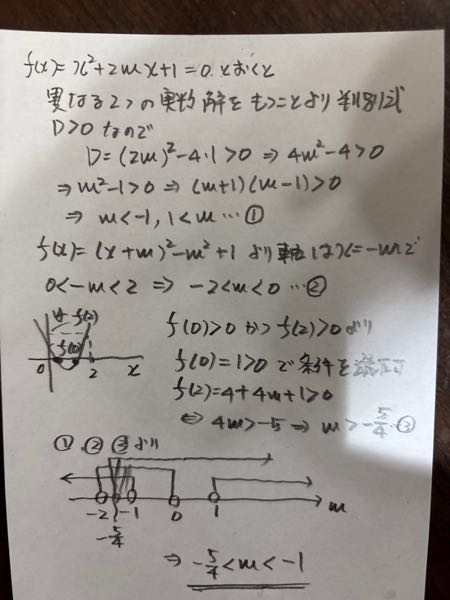 f(x)=x²+2mx+1=0.とおくと
異なる2つの実数解をもつことより判別式
D>0なので
D=(2m)²-4・1>0 ⇒ 4m²-4>0
⇒ m²-1>0 ⇒ (m+1)(m-1)>0
⇒ m<-1, 1<m …①
f(x)=(x+m)²-m²+1 より軸はx=-mで
0<-m<2 ⇒ -2<m<0 …②
y f(2)
f(0)
0 2 x
f(0)>0かつf(2)>0より
f(0)=1>0で条件を満たす
f(2)=4+4m+1>0
⇔ 4m>-5 ⇒ m>-5/4 …③
①,②,③より
-2 -5/4 -1 0 1 m
⇒ -5/4<m<-1